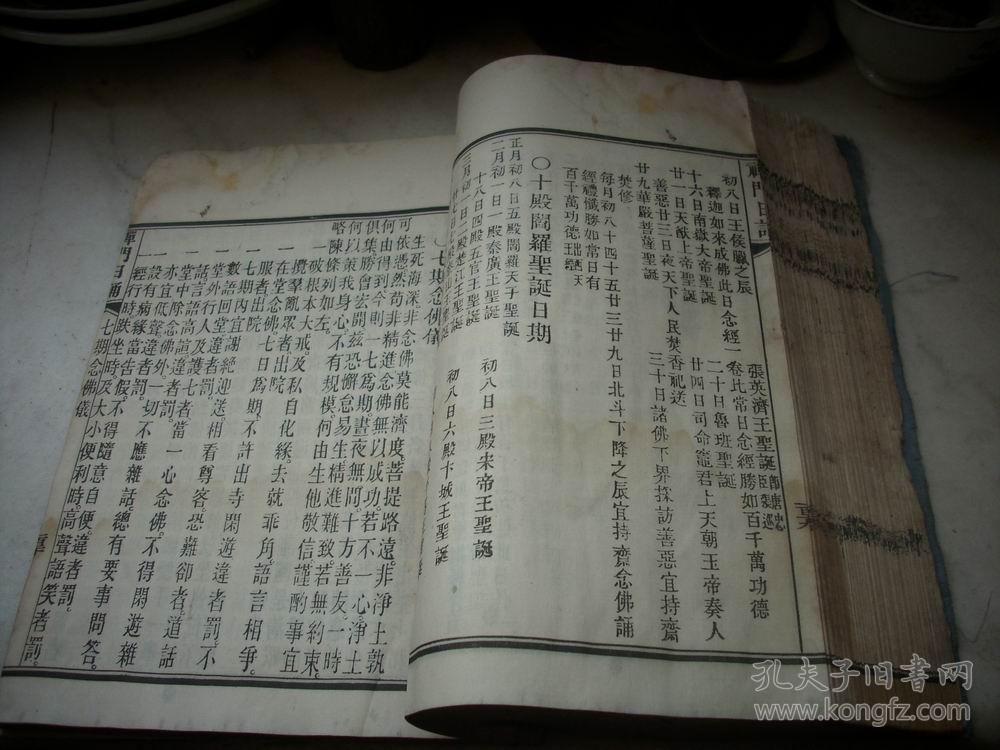 禪門日誦
初八日王侯臘之辰 張英濟王聖誕
釋迦如來成佛此日念經一卷比常日念經勝如百千萬功德
十六日南嶽大帝聖誕 二十日魯班聖誕
廿一日天猷上帝聖誕 廿四日司命竈君上天朝玉帝奏人
善惡廿三日夜天下人民焚香祀送
廿九華嚴菩薩聖誕 三十日諸佛下界採訪善惡宜持齋
焚修
每月初八十四十五廿三廿九日北斗下降之辰宜持齋念佛誦
經禮懺勝如常日有
百千萬功德
〇十殿閻羅聖誕日期
正月初八日五殿閻羅天子聖誕
二月初一日一殿秦廣王聖誕 初八日三殿宋帝王聖誕
十八日四殿五官王聖誕
三月初一日二殿楚江王聖誕 初八日六殿卞城王聖誕
七期念佛儀
生死海深非念佛莫能濟度菩提路遠。非淨土孰
可依憑然苟非精進念佛無以成功。若不一心。淨土
何由得到今則一七爲期。晝夜無間。十方善友。一時
俱集勝會宏開兹恐懈怠易生精進難致。若無約束。
何以策我身心。不有規模。何由生他敬信謹酌事宜
略陳條列如左。
一 破根本大戒。及私自化緣。去就乖角。語言相爭。
攪羣亂眾者出院
一 在堂念佛七日爲期。不許出寺閑遊違者罰。不
服者出院
一 七期內宜謝絕迎送相看尊客。恐難卻者。道話
數語回堂違者罰
一 堂外行人及護七者。當一心念佛。不得閑遊雜
話言語高諠違者罰。
一 堂中除念佛外。一切不應雜話。總有要事問答。
亦宜低聲違者罰。
一 設有病緣當告假。不得隨意自便。違者罰。
一 經行時趺坐時及大小便利時。高聲語笑者罰。
禪門日誦 七期念佛儀
孔夫子旧书网
www.kongfz.com